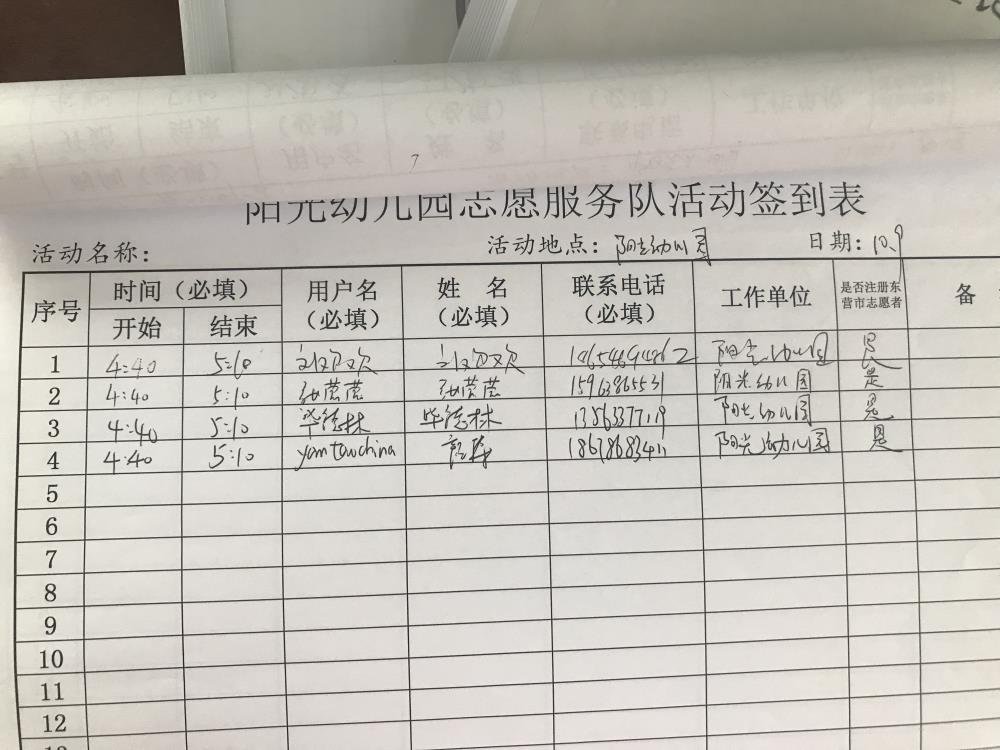 阳光幼儿园志愿服务队活动签到表
活动名称: 活动地点: 阳光幼儿园 日期: 10.9
序号 时间（必填） 用户名（必填） 姓 名（必填） 联系电话（必填） 工作单位 是否注册东营市志愿者 备
开始 结束
1 4:40 5:10 阳光幼儿园 是
2 4:40 5:10 张蓉蓉 张蓉蓉 15963865531 阳光幼儿园 是
3 4:40 5:10 毕德林 毕德林 13563377119 阳光幼儿园 是
4 4:40 5:10 yantouchina 阳光幼儿园 是
5
6
7
8
9
10
11
12
13